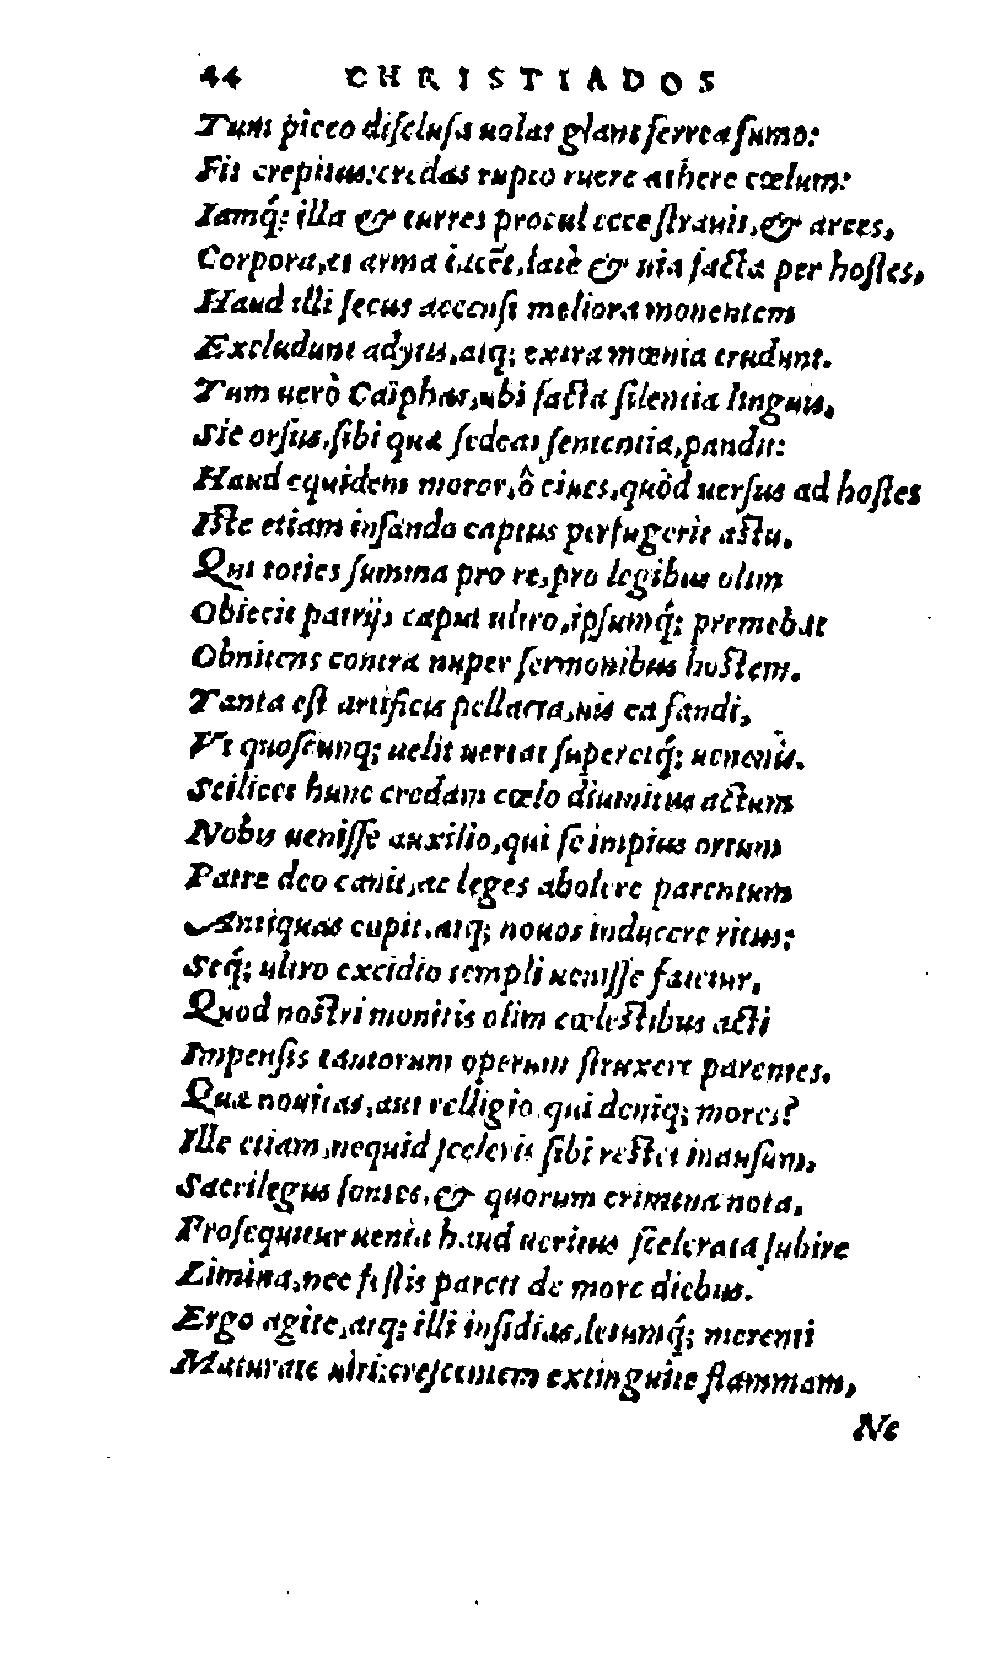 44 CHRISTIADOS
Tum piceo disclusa uolat glans ferrea fumo:
Fit crepitus: credas rupto ruere athere cœlum:
Iamq́; illa & turres procul ecce strauit, & arces,
Corpora, et arma iacẽt, latè & uia facta per hostes,
Haud illi secus accensi meliora monentem
Excludunt adytis, atq; extra mœnia trudunt.
Tum uerò Caïphas, ubi facta silentia linguis,
Sic orsus, sibi quæ sedeat sententia, pandit:
Haud equidem moror, ô ciues, quòd uersus ad hostes
Iste etiam infando captus perfugerit astu.
Qui toties summa pro re, pro legibus olim
Obiecit patrijs caput ultro, ipsumq́; premebat
Obnitens contra nuper sermonibus hostem.
Tanta est artificis pellacia, uis ea fandi,
Vt quoscunq; uelit uertat superetq́; uenenis.
Scilicet hunc credam cœlo diuinitus actum
Nobis uenisse auxilio, qui se impius ortum
Patre deo canit, ac leges abolere parentum
Antiquas cupit, atq; nouos inducere ritus:
Seq́; ultro excidio templi uenisse fatetur,
Quod nostri monitis olim cœlestibus acti
Impensis tantorum operum struxere parentes.
Quæ nouitas, aut relligio, qui deniq; mores?
Ille etiam, nequid sceleris sibi restet inausum,
Sacrilegus sontes, & quorum crimina nota,
Prosequitur uenia haud ueritus scelerata subire
Limina, nec festis parcit de more diebus.
Ergo agite, atq; illi insidias, letumq́; merenti
Maturate uiri: crescentem extinguite flammam,
Ne